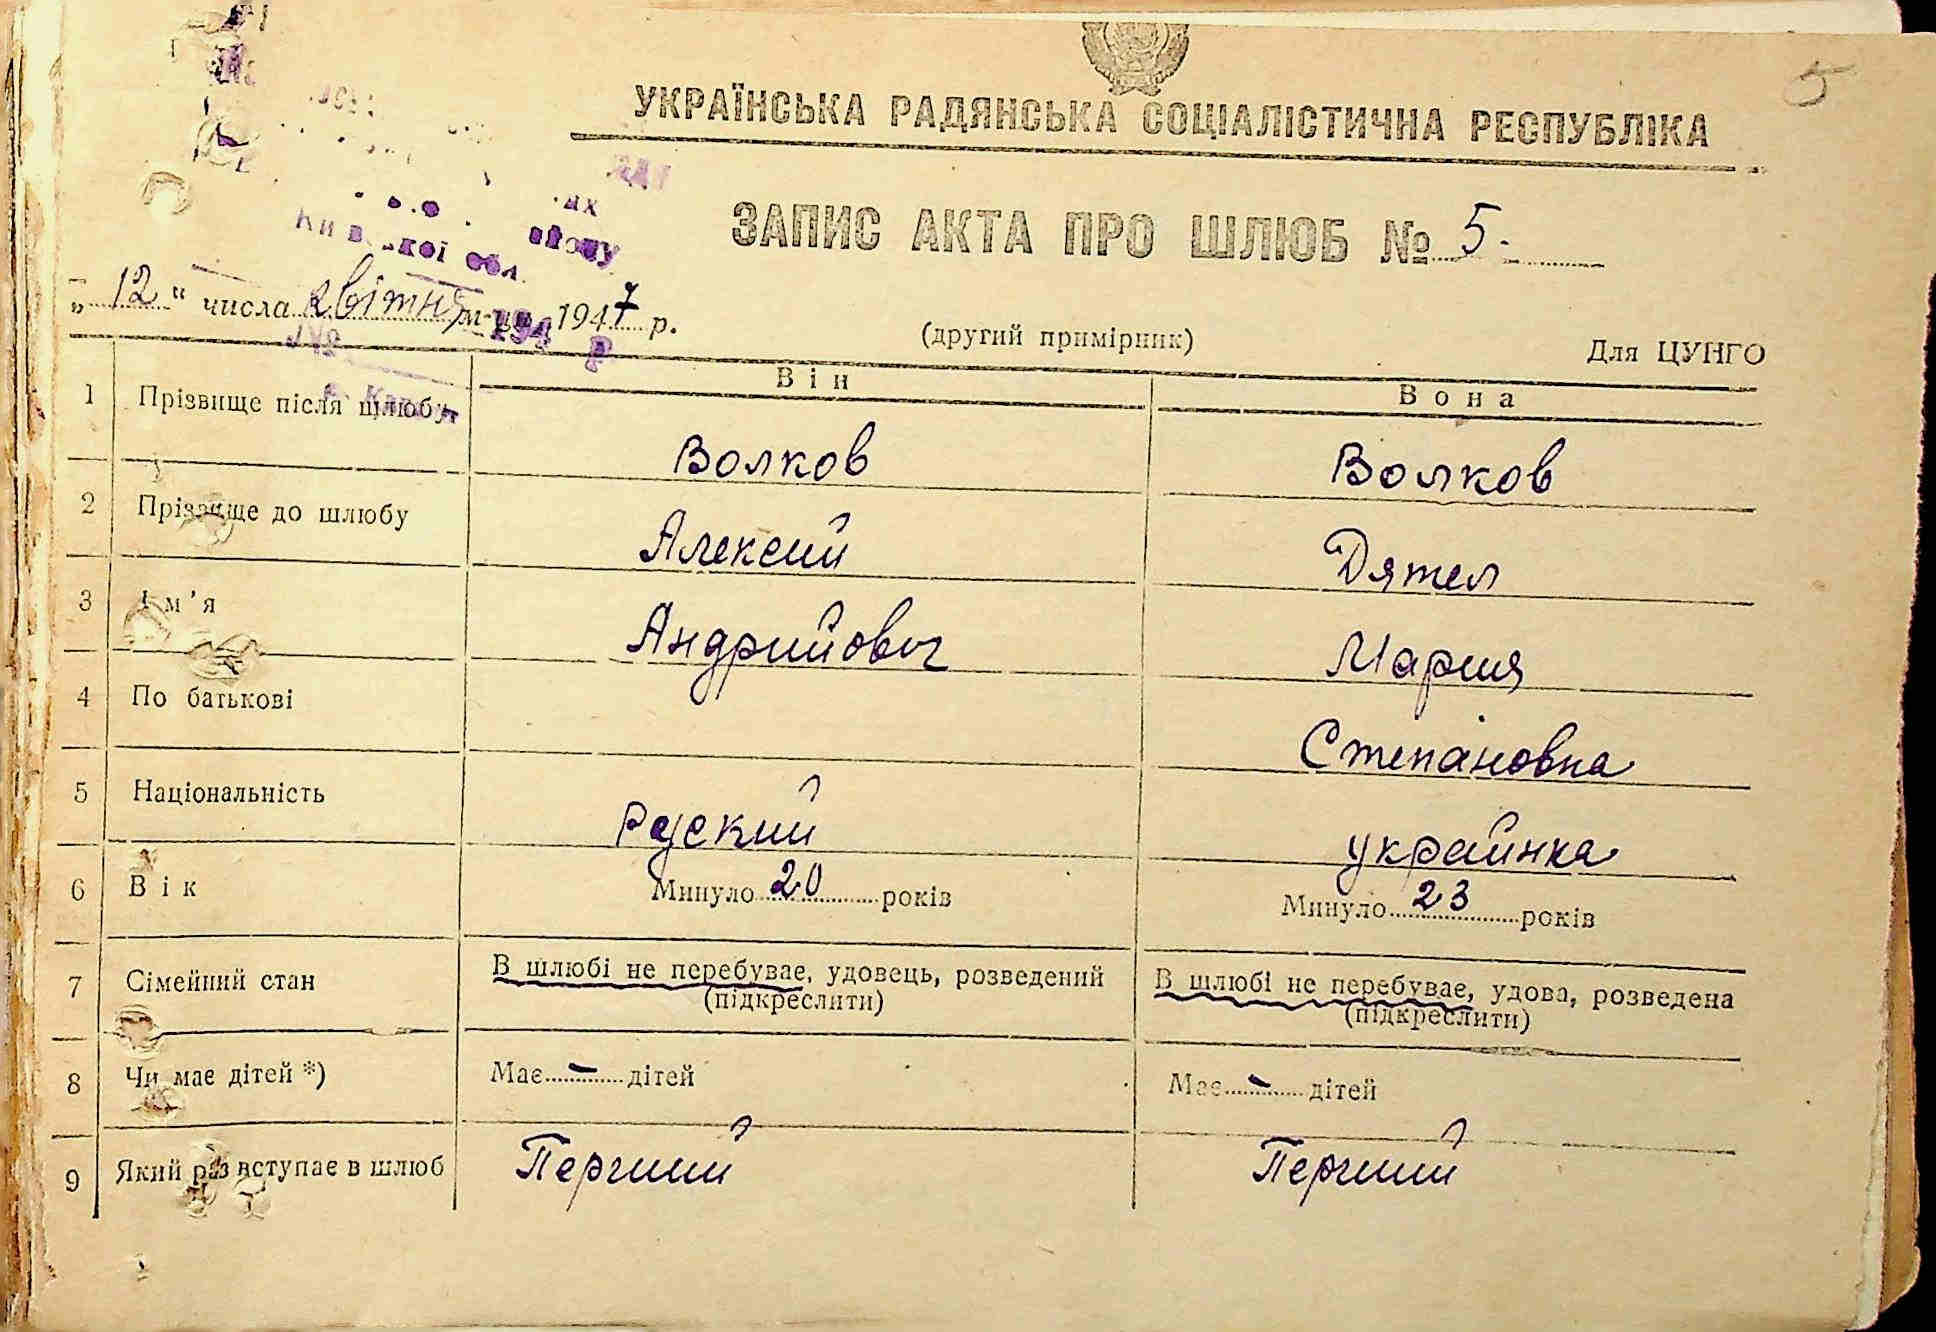 5
УКРАЇНСЬКА РАДЯНСЬКА СОЦІАЛІСТИЧНА РЕСПУБЛІКА
ЗАПИС АКТА ПРО ШЛЮБ № 5.
Київської обл.
„12“ числа квітня м-ця 1947 р.
194 Р
№
(другий примірник)
Для ЦУНГО
Він Вона
1 Прізвище після шлюбу Волков Волков
2 Прізвище до шлюбу Алексий Дятел
3 Ім’я Андрийович Мария
4 По батькові Степановна
5 Національність Руский украинка
6 Вік Минуло 20 років Минуло 23 років
7 Сімейний стан В шлюбі не перебуває, удовець, розведений В шлюбі не перебуває, удова, розведена
(підкреслити) (підкреслити)
8 Чи має дітей *) Має – дітей Має – дітей
9 Який раз вступає в шлюб Перший Перший